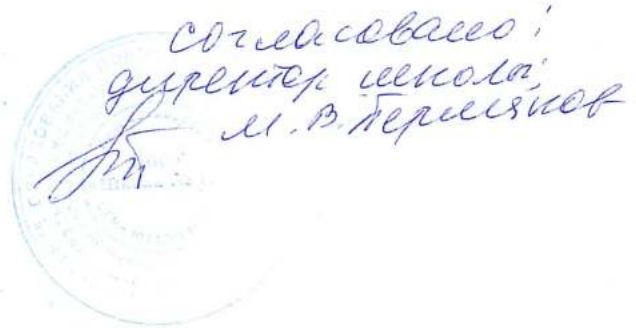 согласовано:
директор школы:
М. В. Пермяков